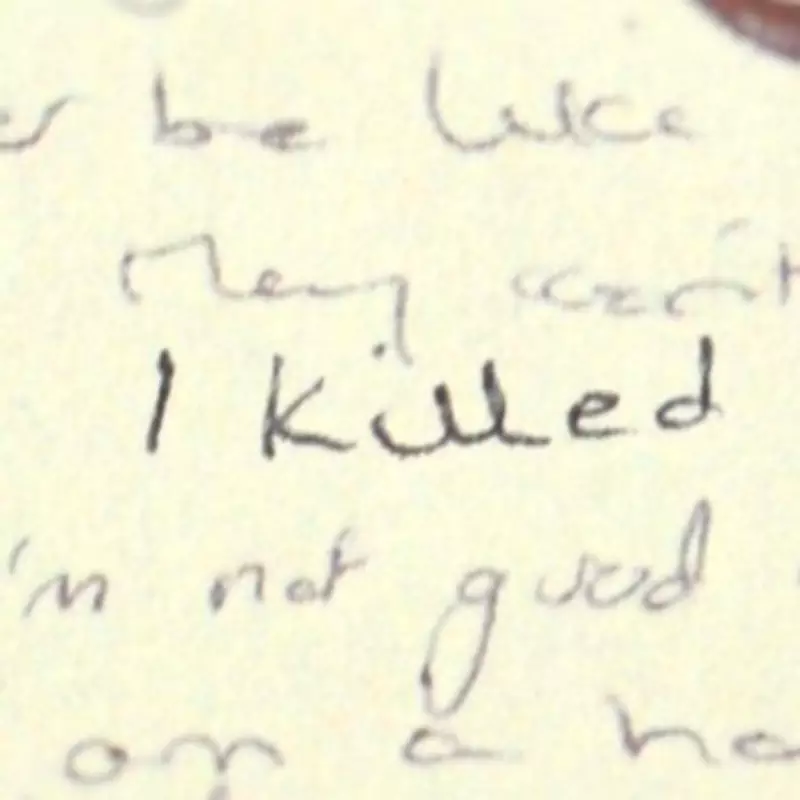 be like
They can't
I killed
'm not good
on a